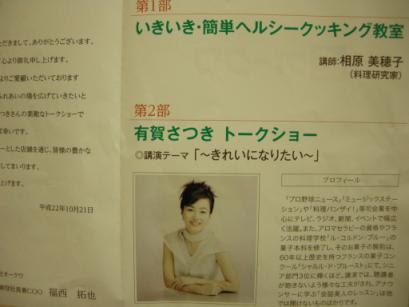 だきまして、ありがとうございます。
心より御礼申し上げます。
よりご愛顧いただいております
ふれあいの場を広げていきたいと
つきさんの素敵なトークショーで
ーとした店舗を通じ、皆様の豊かな
てまいります。
上げます。
平成22年10月21日
福西 拓也
第1部
いきいき・簡単ヘルシークッキング教室
講師:相原 美穂子
(料理研究家)
第2部
有賀さつき トークショー
◎講演テーマ 「〜きれいになりたい〜」
プロフィール
「プロ野球ニュース」「ミュージックステー
ション」や「料理バンザイ!」等司会業を中
心にテレビ、ラジオ、新聞、イベントで幅広
く活躍。また、アロマセラピーの資格やフラ
ンスの料理学校「ル・コルドン・ブルー」の
菓子本科を修了し、そのお菓子の腕前は、
60年以上歴史を持つフランスの菓子コン
クール「シャルル・ド・プルースト」にて、シニ
ア部門3位に輝くほど。講演では、聴講者